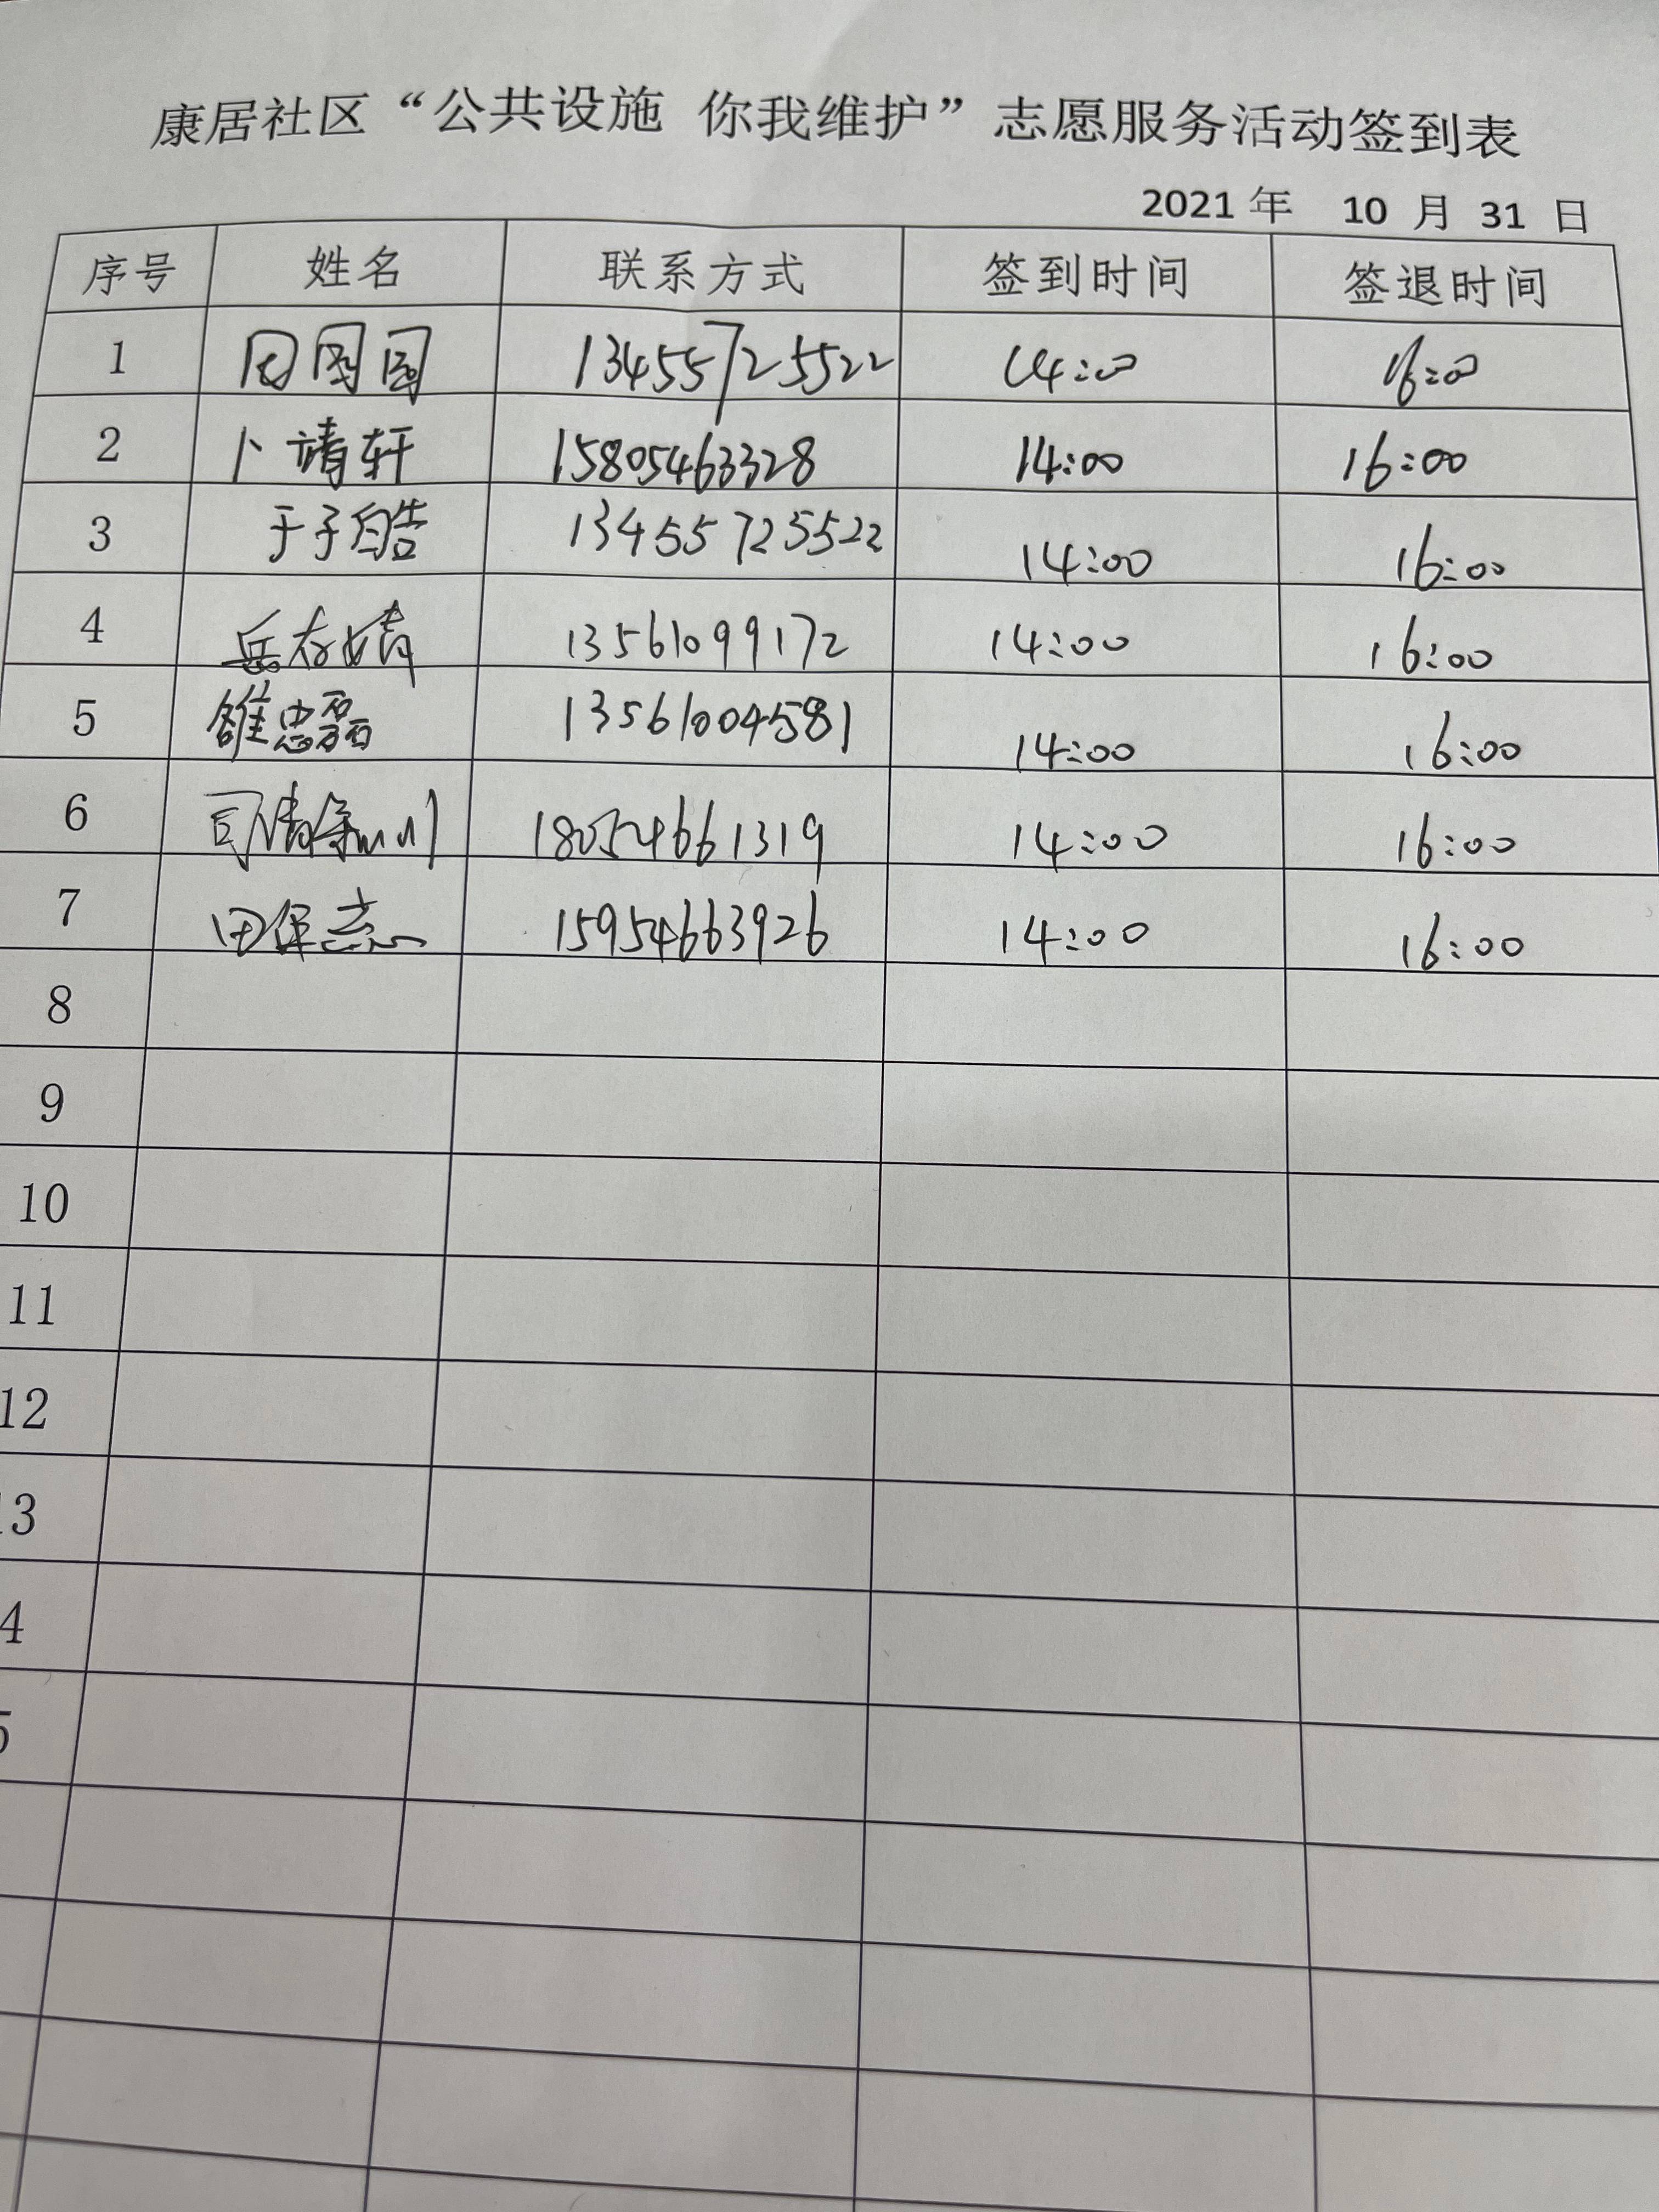 康居社区“公共设施 你我维护”志愿服务活动签到表
2021 年 10 月 31 日
序号 姓名 联系方式 签到时间 签退时间
1 13455725522 14:00 16:00
2 卜靖轩 15805463328 14:00 16:00
3 于子皓 13455725522 14:00 16:00
4 岳春婧 13561099172 14:00 16:00
5 雒忠磊 13561004581 14:00 16:00
6 18054661319 14:00 16:00
7 田保志 15954663926 14:00 16:00
8
9
10
11
12
13
4
5